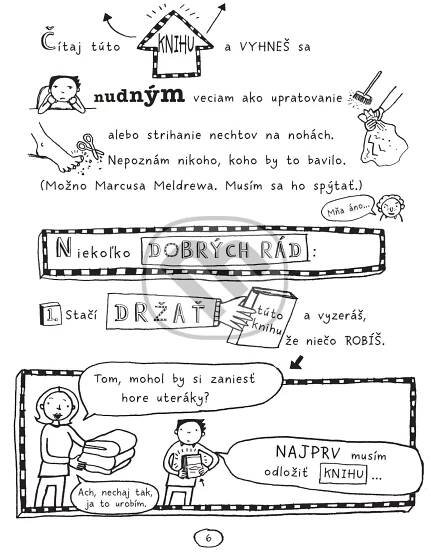 Čítaj túto KNIHU a VYHNEŠ sa
nudným veciam ako upratovanie
alebo strihanie nechtov na nohách.
Nepoznám nikoho, koho by to bavilo.
(Možno Marcusa Meldrewa. Musím sa ho spýtať.)
Mňa áno...
Niekoľko DOBRÝCH RÁD:
1. Stačí DRŽAŤ túto knihu a vyzeráš,
že niečo ROBÍŠ.
Tom, mohol by si zaniesť
hore uteráky?
NAJPRV musím
odložiť KNIHU ...
Ach, nechaj tak,
ja to urobím.
6